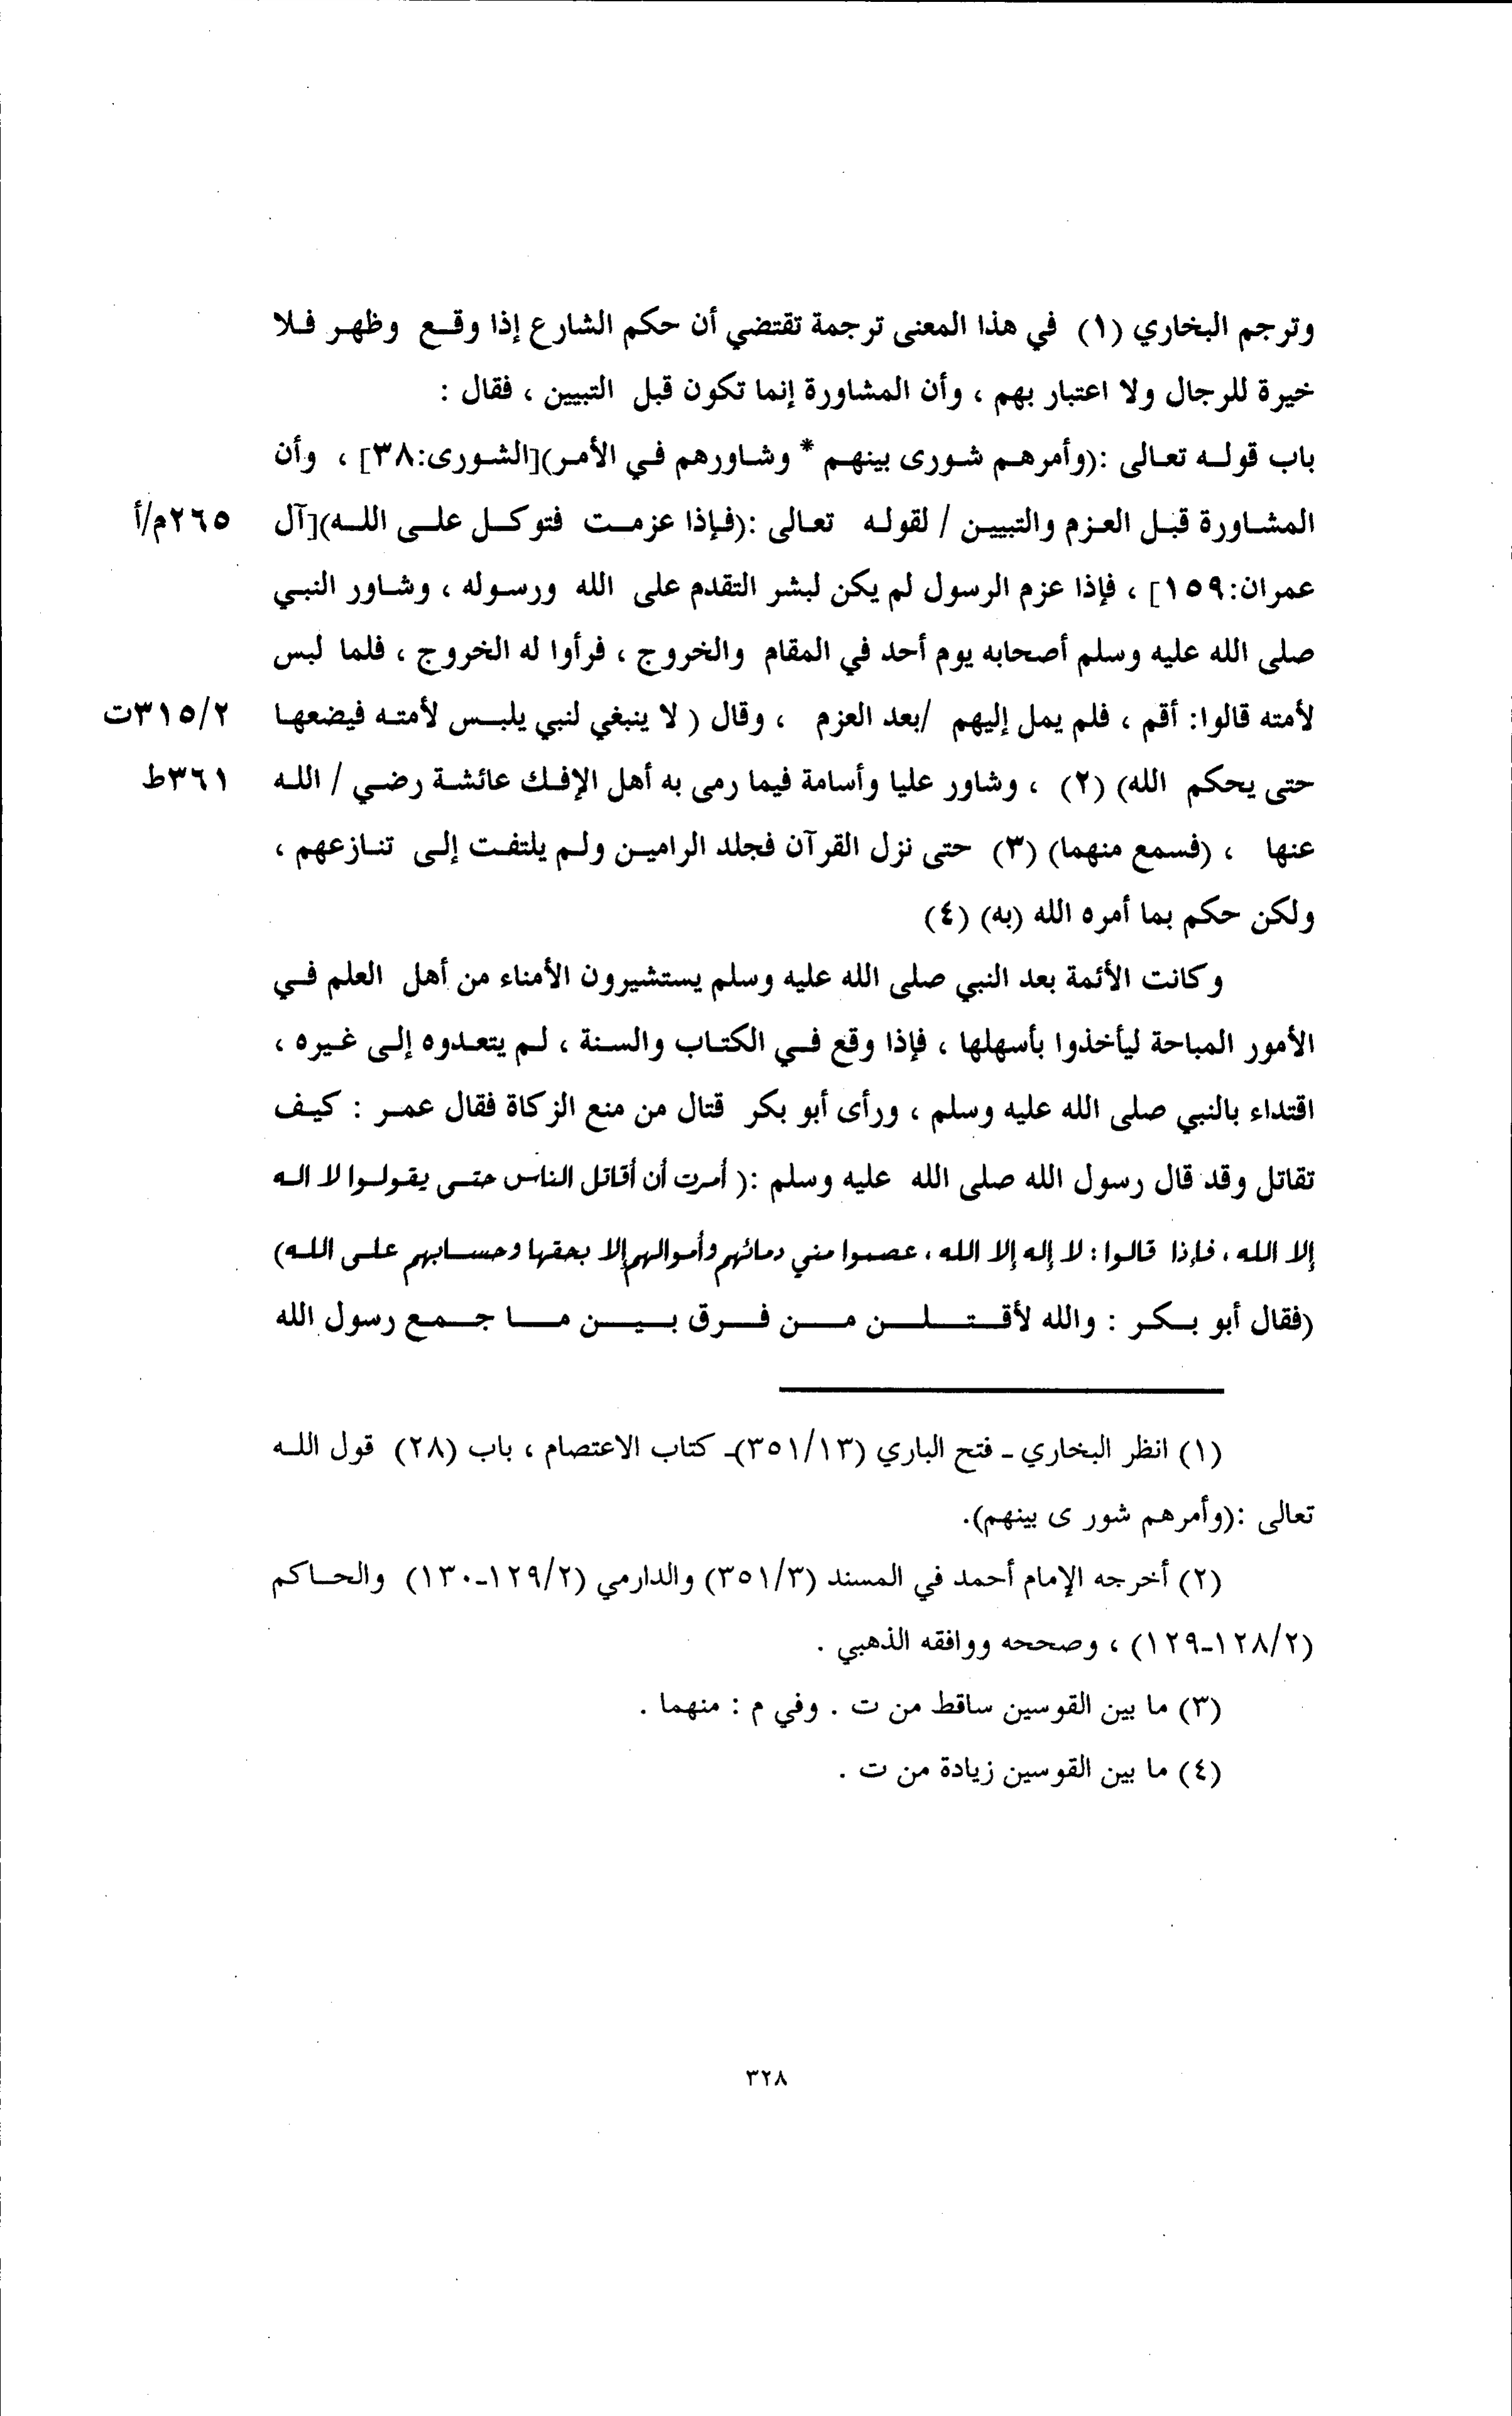 وترجم البخاري (١) في هذا المعنى ترجمة تقتضي أن حكم الشارع إذا وقع وظهر فلا
خيرة للرجال ولا اعتبار بهم ، وأن المشاورة إنما تكون قبل التبيين ، فقال :
باب قوله تعالى :(وأمرهم شورى بينهم * وشاورهم في الأمر)[الشورى:٣٨] ، وأن
المشاورة قبل العزم والتبيين / لقوله تعالى :(فإذا عزمت فتوكل على الله)[آل ٢٦٥م/أ
عمران:١٥٩] ، فإذا عزم الرسول لم يكن لبشر التقدم على الله ورسوله ، وشاور النبي
صلى الله عليه وسلم أصحابه يوم أحد في المقام والخروج ، فرأوا له الخروج ، فلما لبس
لأمته قالوا: أقم ، فلم يمل إليهم /بعد العزم ، وقال ( لا ينبغي لنبي يلبس لأمته فيضعها ٣١٥/٢ت
حتى يحكم الله) (٢) ، وشاور عليا وأسامة فيما رمى به أهل الإفك عائشة رضي / الله ٣٦١ط
عنها ، (فسمع منهما) (٣) حتى نزل القرآن فجلد الرامين ولم يلتفت إلى تنازعهم ،
ولكن حكم بما أمره الله (به) (٤)
وكانت الأئمة بعد النبي صلى الله عليه وسلم يستشيرون الأمناء من أهل العلم في
الأمور المباحة ليأخذوا بأسهلها ، فإذا وقع في الكتاب والسنة ، لم يتعدوه إلى غيره ،
اقتداء بالنبي صلى الله عليه وسلم ، ورأى أبو بكر قتال من منع الزكاة فقال عمر : كيف
تقاتل وقد قال رسول الله صلى الله عليه وسلم :( أمرت أن أقاتل الناس حتى يقولوا لا اله
إلا الله ، فإذا قالوا : لا إله إلا الله ، عصموا مني دمائهم وأموالهم إلا بحقها وحسابهم على الله)
(فقال أبو بكر : والله لأقتلن من فرق بين ما جمع رسول الله
(١) انظر البخاري - فتح الباري (٣٥١/١٣)- كتاب الاعتصام ، باب (٢٨) قول الله
تعالى :(وأمرهم شور ى بينهم).
(٢) أخرجه الإمام أحمد في المسند (٣٥١/٣) والدارمي (١٢٩/٢-١٣٠) والحاكم
(١٢٨/٢-١٢٩) ، وصححه ووافقه الذهبي .
(٣) ما بين القوسين ساقط من ت . وفي م : منهما .
(٤) ما بين القوسين زيادة من ت .
٣٢٨